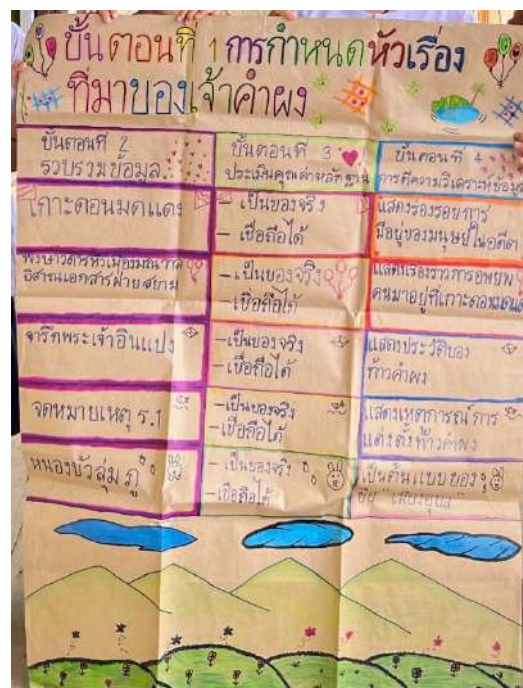 ขั้นตอนที่ 1 การกำหนดหัวเรื่อง
ที่มาของเจ้าคำผง
ขั้นตอนที่ 2
รวบรวมข้อมูล
ขั้นตอนที่ 3
ประเมินคุณค่าหลักฐาน
ขั้นตอนที่ 4
การตีความวิเคราะห์ข้อมูล
เกาะดอนมดแดง
- เป็นของจริง
- เชื่อถือได้
แสดงร่องรอยการ
มีอยู่ของมนุษย์ในอดีต
พงษาวดารหัวเมืองมณฑล
อิสานเอกสารฝ่ายสยาม
- เป็นของจริง
- เชื่อถือได้
แสดงเรื่องราวการอพยพ
คนมาอยู่ที่เกาะดอนมดแดง
จารึกพระเจ้าอินแปง
- เป็นของจริง
- เชื่อถือได้
แสดงประวัติของ
ท้าวคำผง
จดหมายเหตุ ร.1
- เป็นของจริง
- เชื่อถือได้
แสดงเหตุการณ์การ
แต่งตั้งท้าวคำผง
หนองบัวลุ่มภู
- เป็นของจริง
- เชื่อถือได้
เป็นต้นแบบของ
ชื่อ "เมืองอุบล"